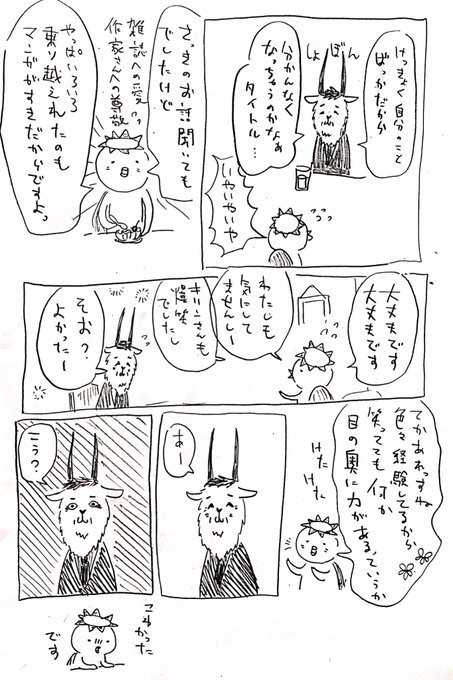 けっきょく自分のこと
ばっかだから
しょぼん
分かんなく
なっちゃうのかなあ
タイトル…
いやいやいや
さっきのお話聞いても
でしたけど
雑誌への愛
作家さんへの尊敬
やっぱいろいろ
乗り越えれたのも
マンガがすきだからですよっ
大丈夫です
大丈夫です
わたしも
気にして
ませんしー
きりんさんも
爆笑
でしたし
そお?
よかったー
てかあれっすね
色々経験してるから
笑ってても何か
目の奥に力がある、ていうか
けた
けた
あー
こう?
こわかった
です